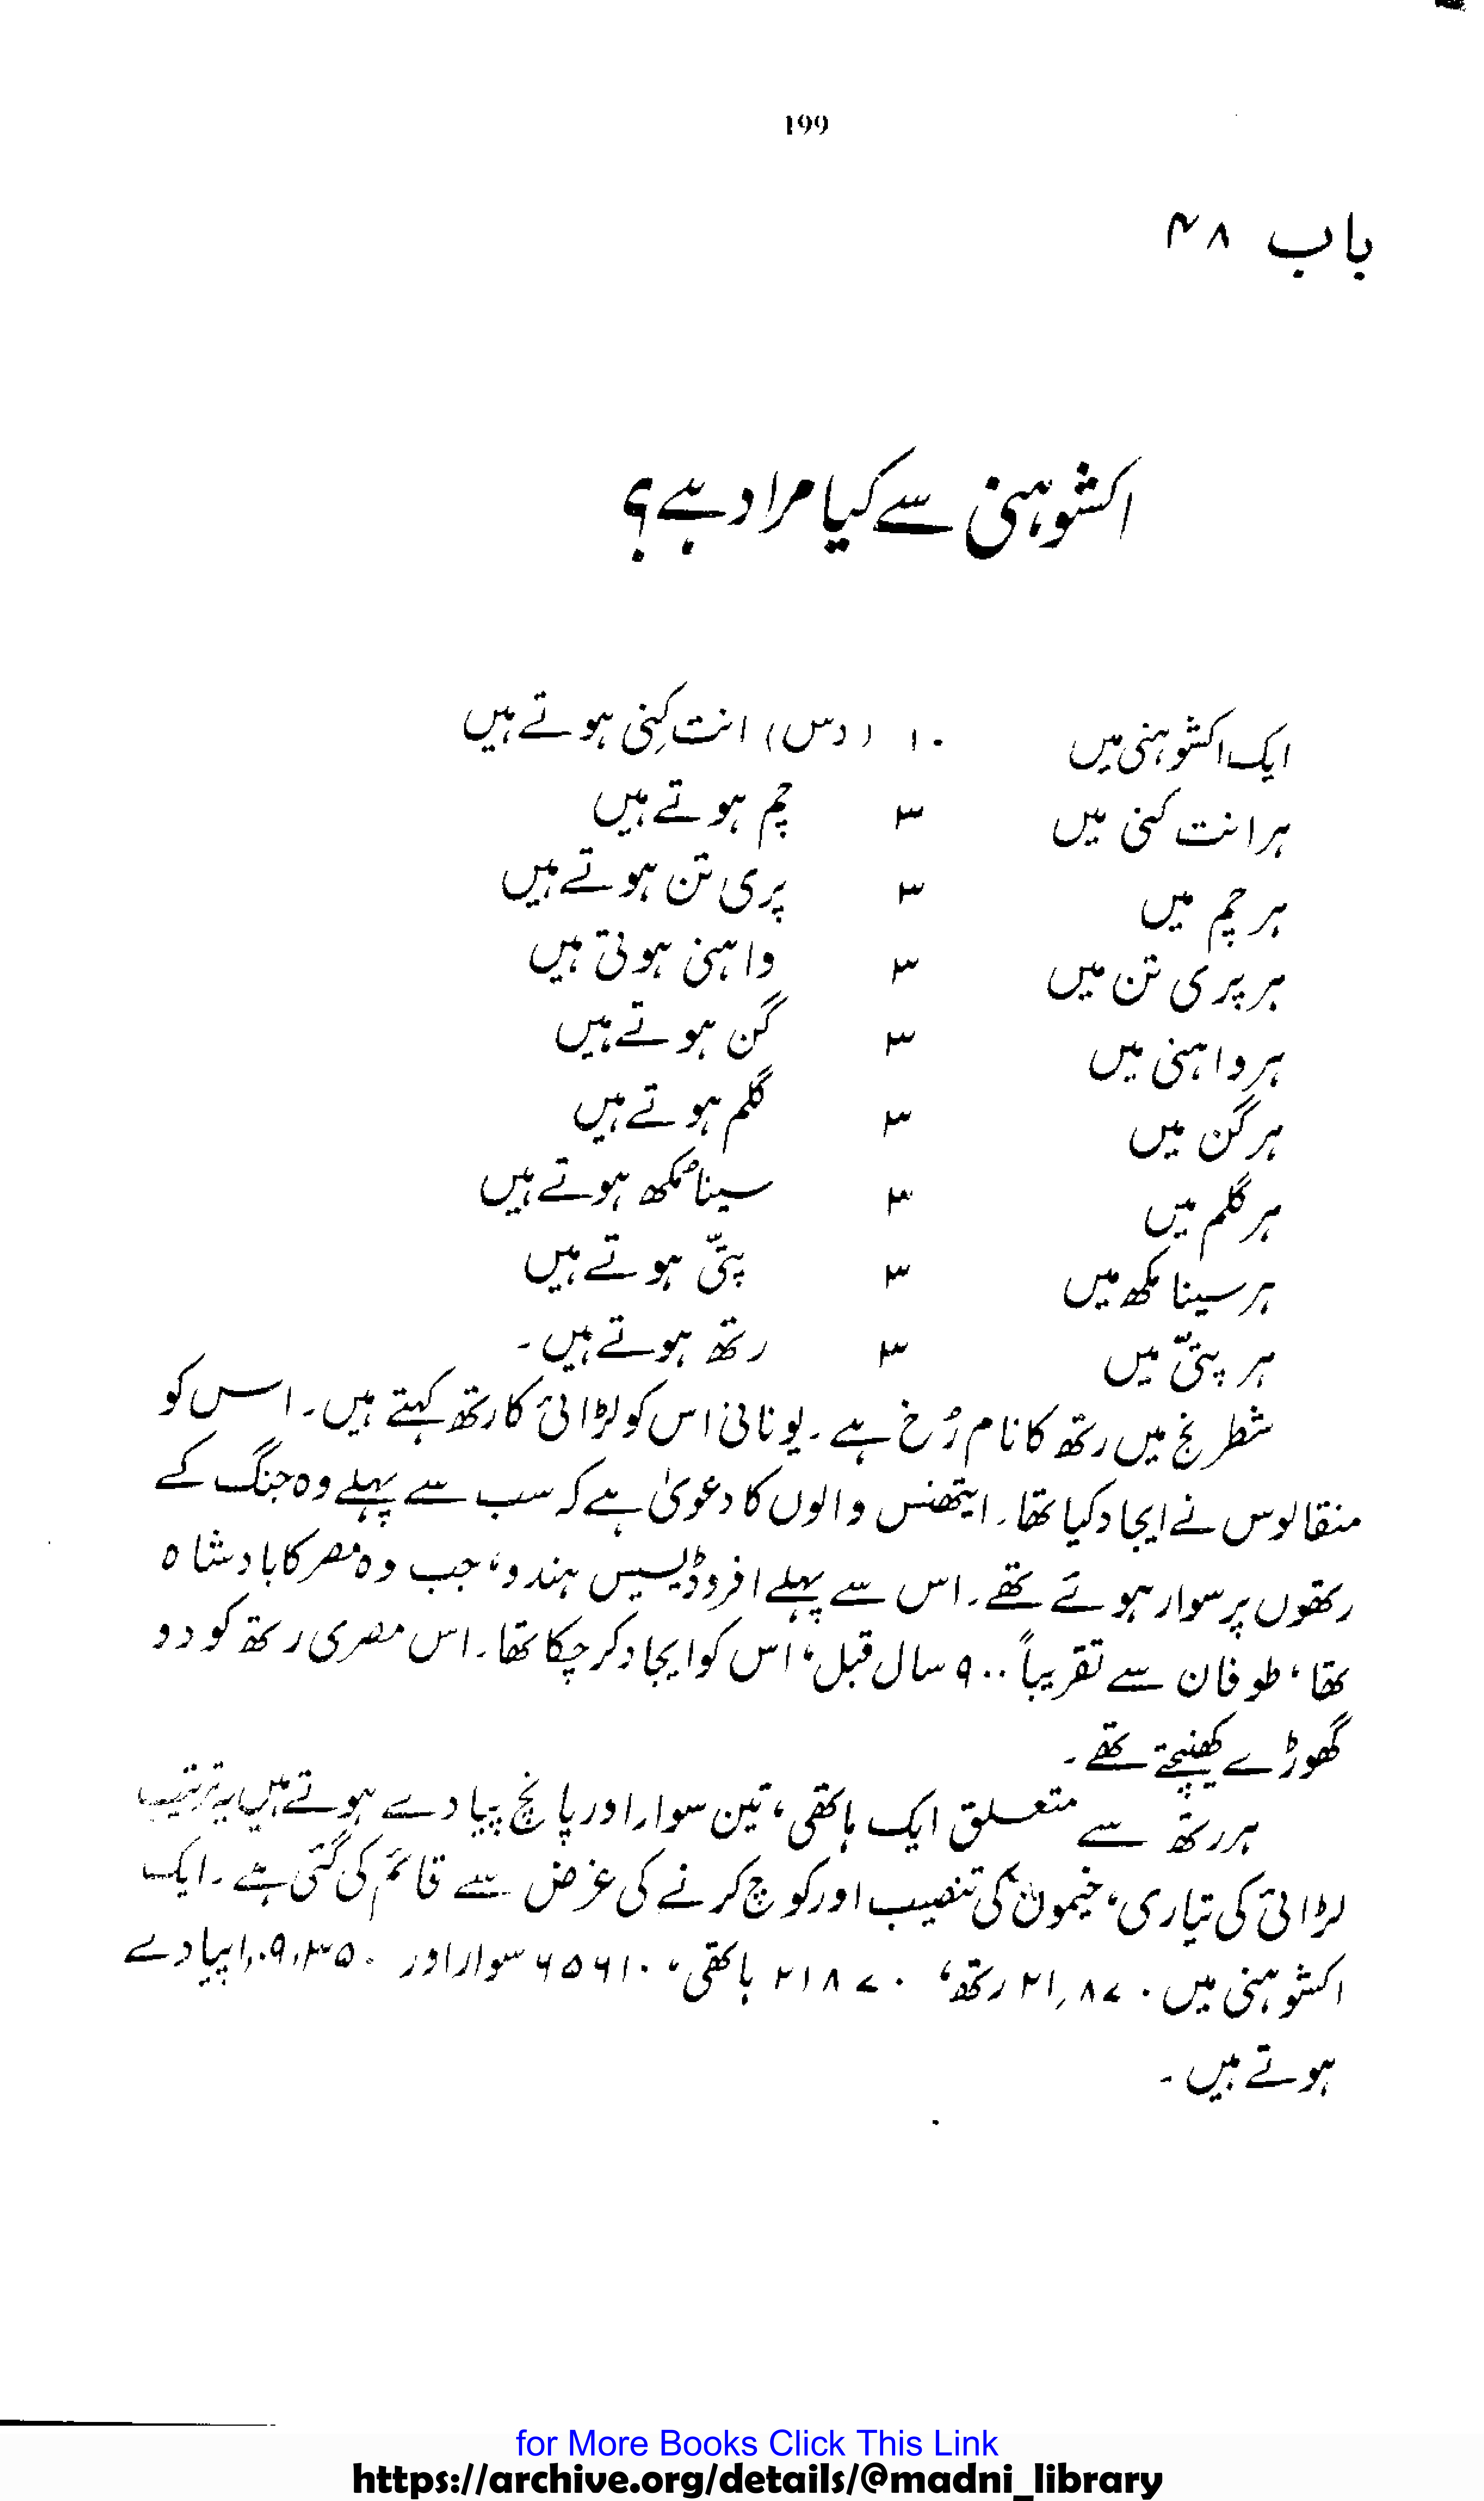 199
باب ۴۸
اکشوہنی سے کیا مراد ہے؟
ایک اکشوہنی میں ۱۰ (دس) انت کِنی ہوتے ہیں
ہر انت کنی میں ۳ چم ہوتے ہیں
ہر چم میں ۳ پری تن ہوتے ہیں
ہر پری تن میں ۳ واہنی ہوتی ہیں
ہر واہنی میں ۳ گن ہوتے ہیں
ہر گن میں ۳ گلم ہوتے ہیں
ہر گلم میں ۳ سینا مُکھ ہوتے ہیں
ہر سینا مکھ میں ۳ پتّی ہوتے ہیں
ہر پتّی میں ۳ رتھ ہوتے ہیں۔
شطرنج میں رتھ کا نام رُخ ہے۔ یونانی اس کو لڑائی کا رتھ کہتے ہیں۔ اس کو
منقالوس نے ایجاد کیا تھا۔ ایتھنس والوں کا دعویٰ ہے کہ سب سے پہلے وہ جنگ کے
رتھوں پر سوار ہوئے تھے۔ اس سے پہلے افروڈیسیس ہندو، جب وہ مصر کا بادشاہ
تھا، طوفان سے تقریباً ۹۰۰ سال قبل، اس کو ایجاد کر چکا تھا۔ اس مصری رتھ کو دو
گھوڑے کھینچتے تھے۔
ہر رتھ سے متعلق ایک ہاتھی، تین سوار اور پانچ پیادے ہوتے ہیں یہ ترتیب
لڑائی کی تیاری، خیموں کی تنصیب اور کوچ کرنے کی غرض سے قائم کی گئی ہے۔ ایک
اکشوہنی میں ۲۱,۸۷۰ رتھ، ۲۱۸۷۰ ہاتھی، ۶۵۶۱۰ سوار اور ۱,۰۹,۳۵۰ پیادے
ہوتے ہیں۔
for More Books Click This Link
https://archive.org/details/@madni_library